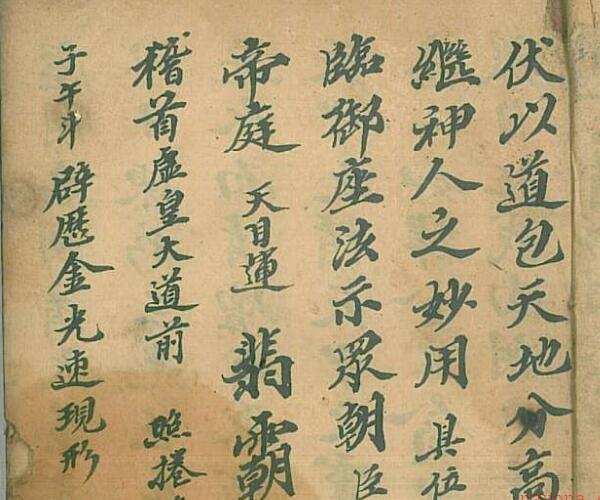 伏以道包天地分高
继神人之妙用 具位
臨御座法示眾朝臣
帝庭 天目運
稽首虛皇大道前 照捲
子午斗 辟歷金光速現形